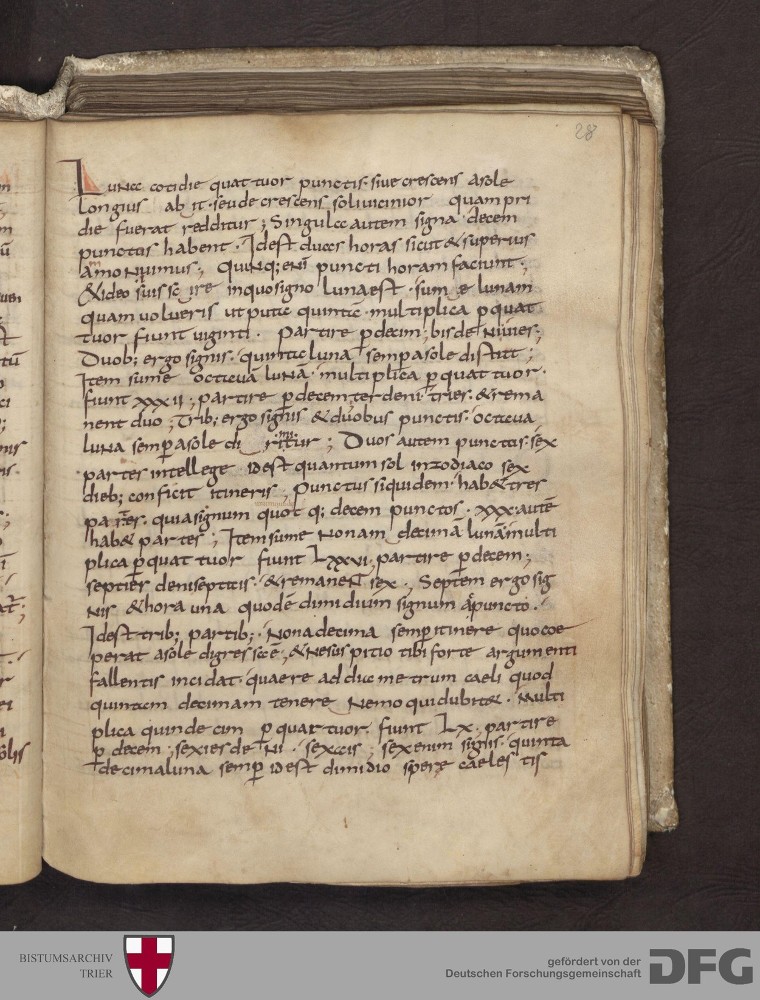 28
Luna cotidie quattuor punctis. siue crescens asole
longius ab it. seu de crescens soli uicinior quam pri
die fuerat redditur; Singula autem signa decem
punctus habent. Idest duas horas sicut & superius
Quinq; eni puncti horam faciunt;
&ideo in quo signo luna est. sum e lunam
quam uolueris ut puta quinta multiplica p quat
tuor fiunt uiginti. partire p decim; bis de
Duob; ergo signis. quinta luna semp asole distat;
Item sume octaua lunā. multiplica p quattuor.
fiunt xxxii; partire p decem ter deni & rema
nent duo; Trib; ergo signis & duobus punctis. octaua
luna semp asole di; Duos autem punctus. sex
partes intellege idest quantum sol inzodiaco sex
dieb; conficit itineris; Punctus siquidem. hab& tres
quia signum quot q; decem punctos. xxx. autē
hab& partes; Item sume nonam decimā lunā multi
plica p quat tuor fiunt Lxxvi. partire p decem;
septies deni septies. & remanent sex; Septem ergo sig
nis & hora una quod ē dimidium signum & puncto.
Idest trib; partib; Nona decima semp itinere quo coe
perat asole digressa ē; & ne suspitio tibi forte argumenti
fallentis incidat. quaere ad duc me trum caeli quod
quintam decimam tenere nemo qui dubitat. Multi
plica quindecim p quattuor fiunt Lx. partire
p decem; sexies de ni. sexais; sex enim signis. quinta
decima luna semp idest dimidio spere caeles tis
BISTUMSARCHIV
TRIER
gefördert von der
Deutschen Forschungsgemeinschaft
DFG